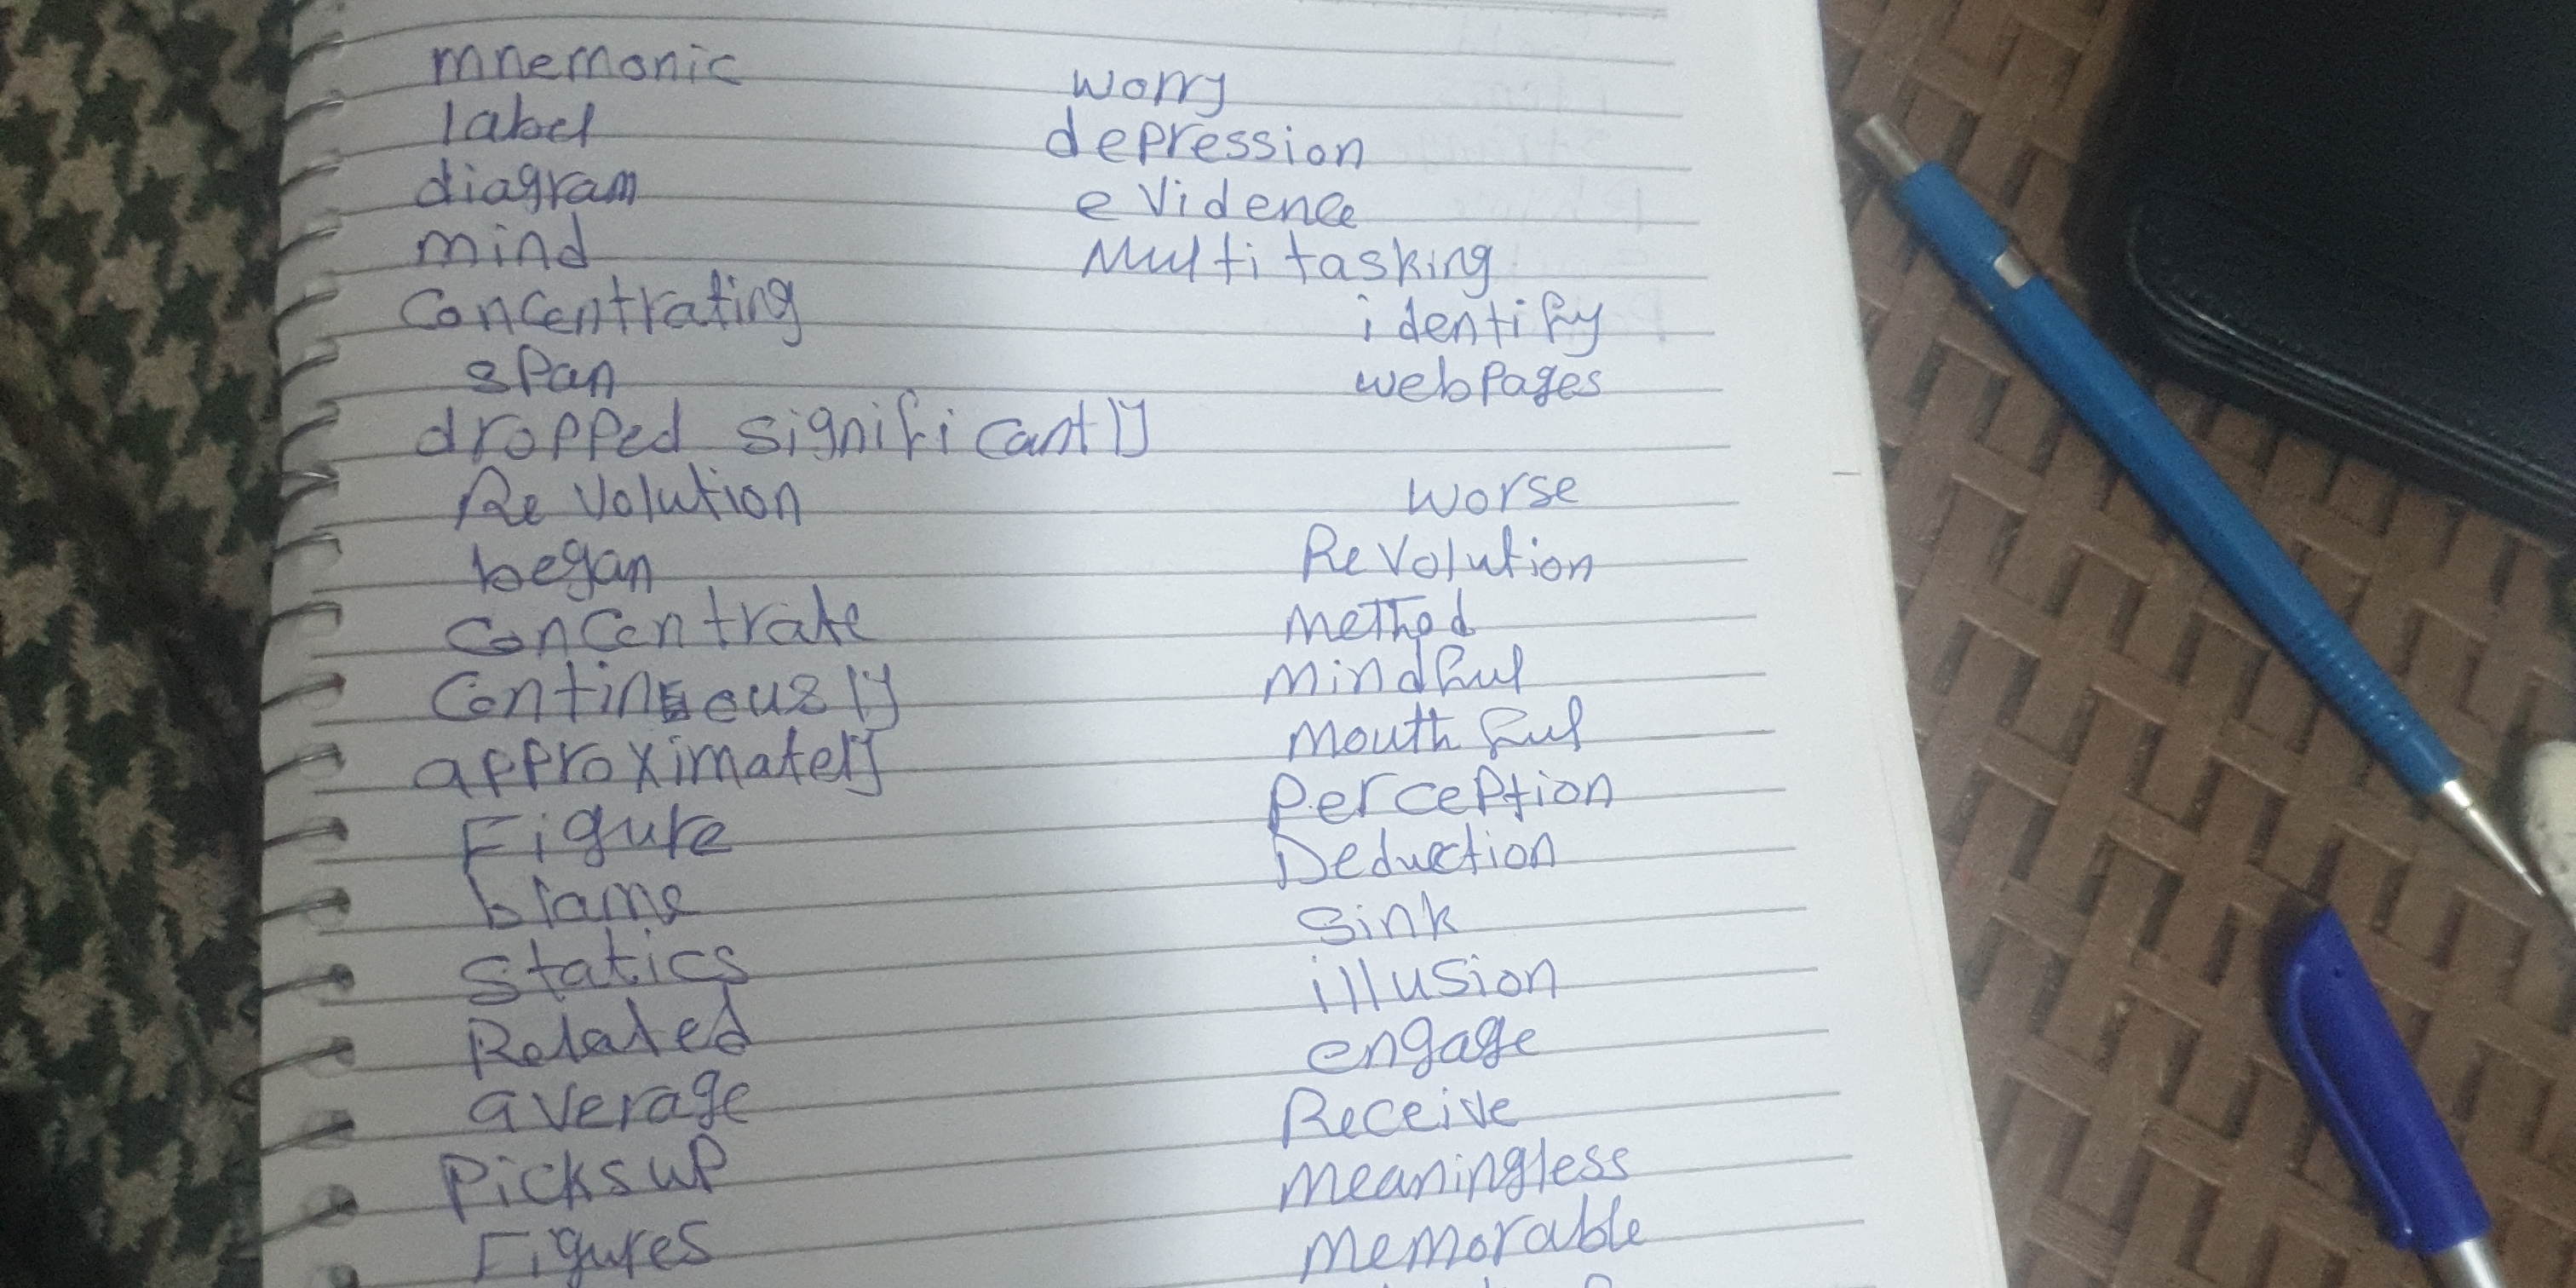 mnemonic
label
diagram
mind
Concentrating
span
dropped significantly
Revolution
began
Concentrate
approximately
Figure
blame
Statics
Related
average
Picks up
Figures
worry
depression
evidence
Multi tasking
identify
webpages
worse
Revolution
Method
Mindful
Mouthful
Perception
Deduction
Sink
illusion
engage
Receive
Meaningless
Memorable